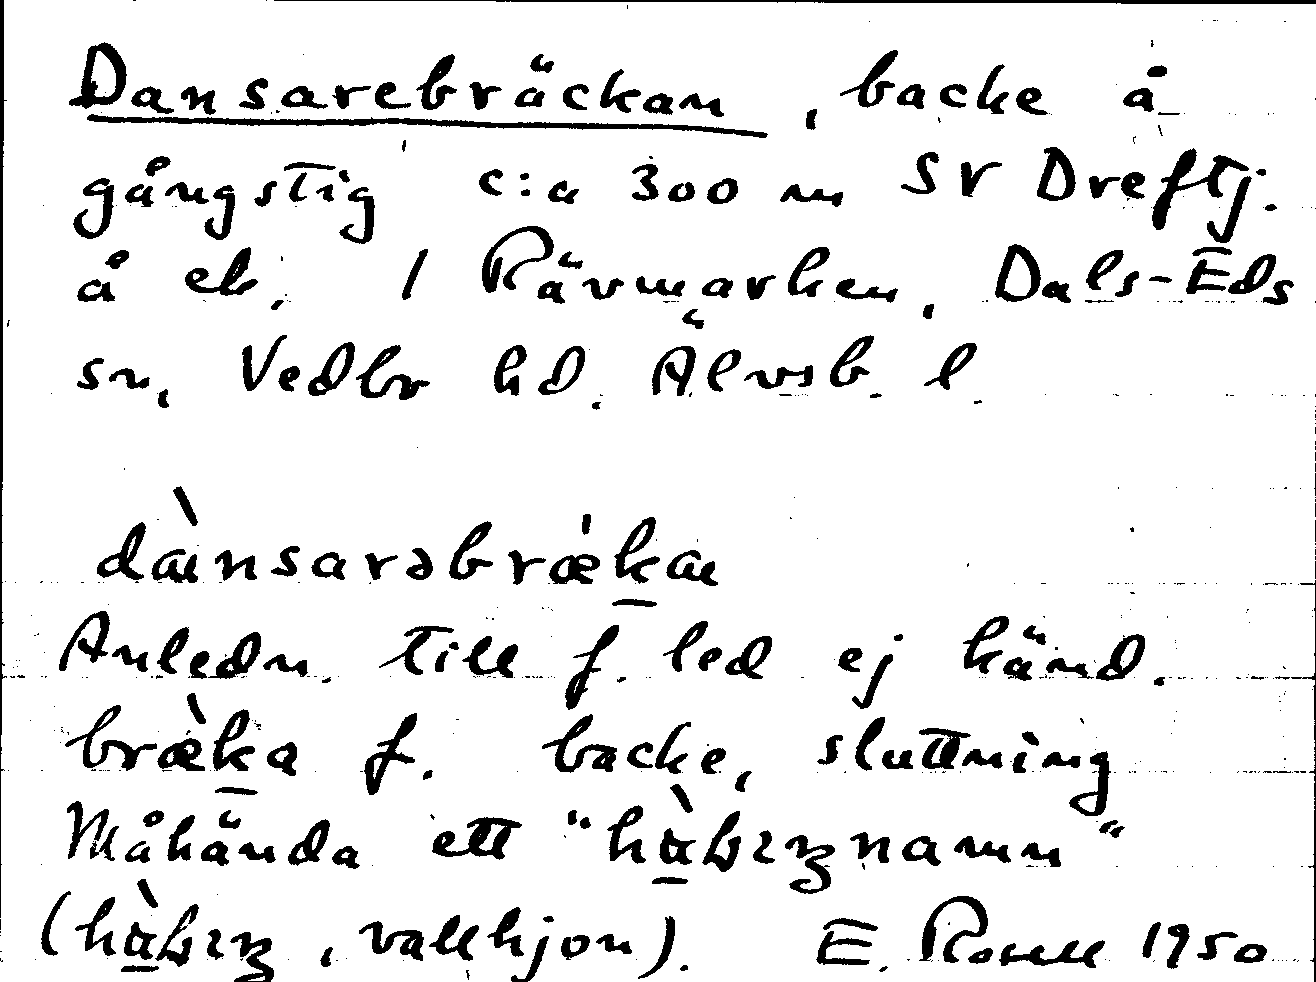 Dansarebräckan, backe å
gångstig c:a 300 m SV Dreftj.
å ek. 1 Rävmarken, Dals-Eds
sn, Vedbo hd. Älvsb. l.
dànsarəbræ̀kan
Anledn. till f. led ej känd.
bræ̀ka f. backe, sluttning
Måhända ett "namn"
(, vallhjon). E. Rosell 1950